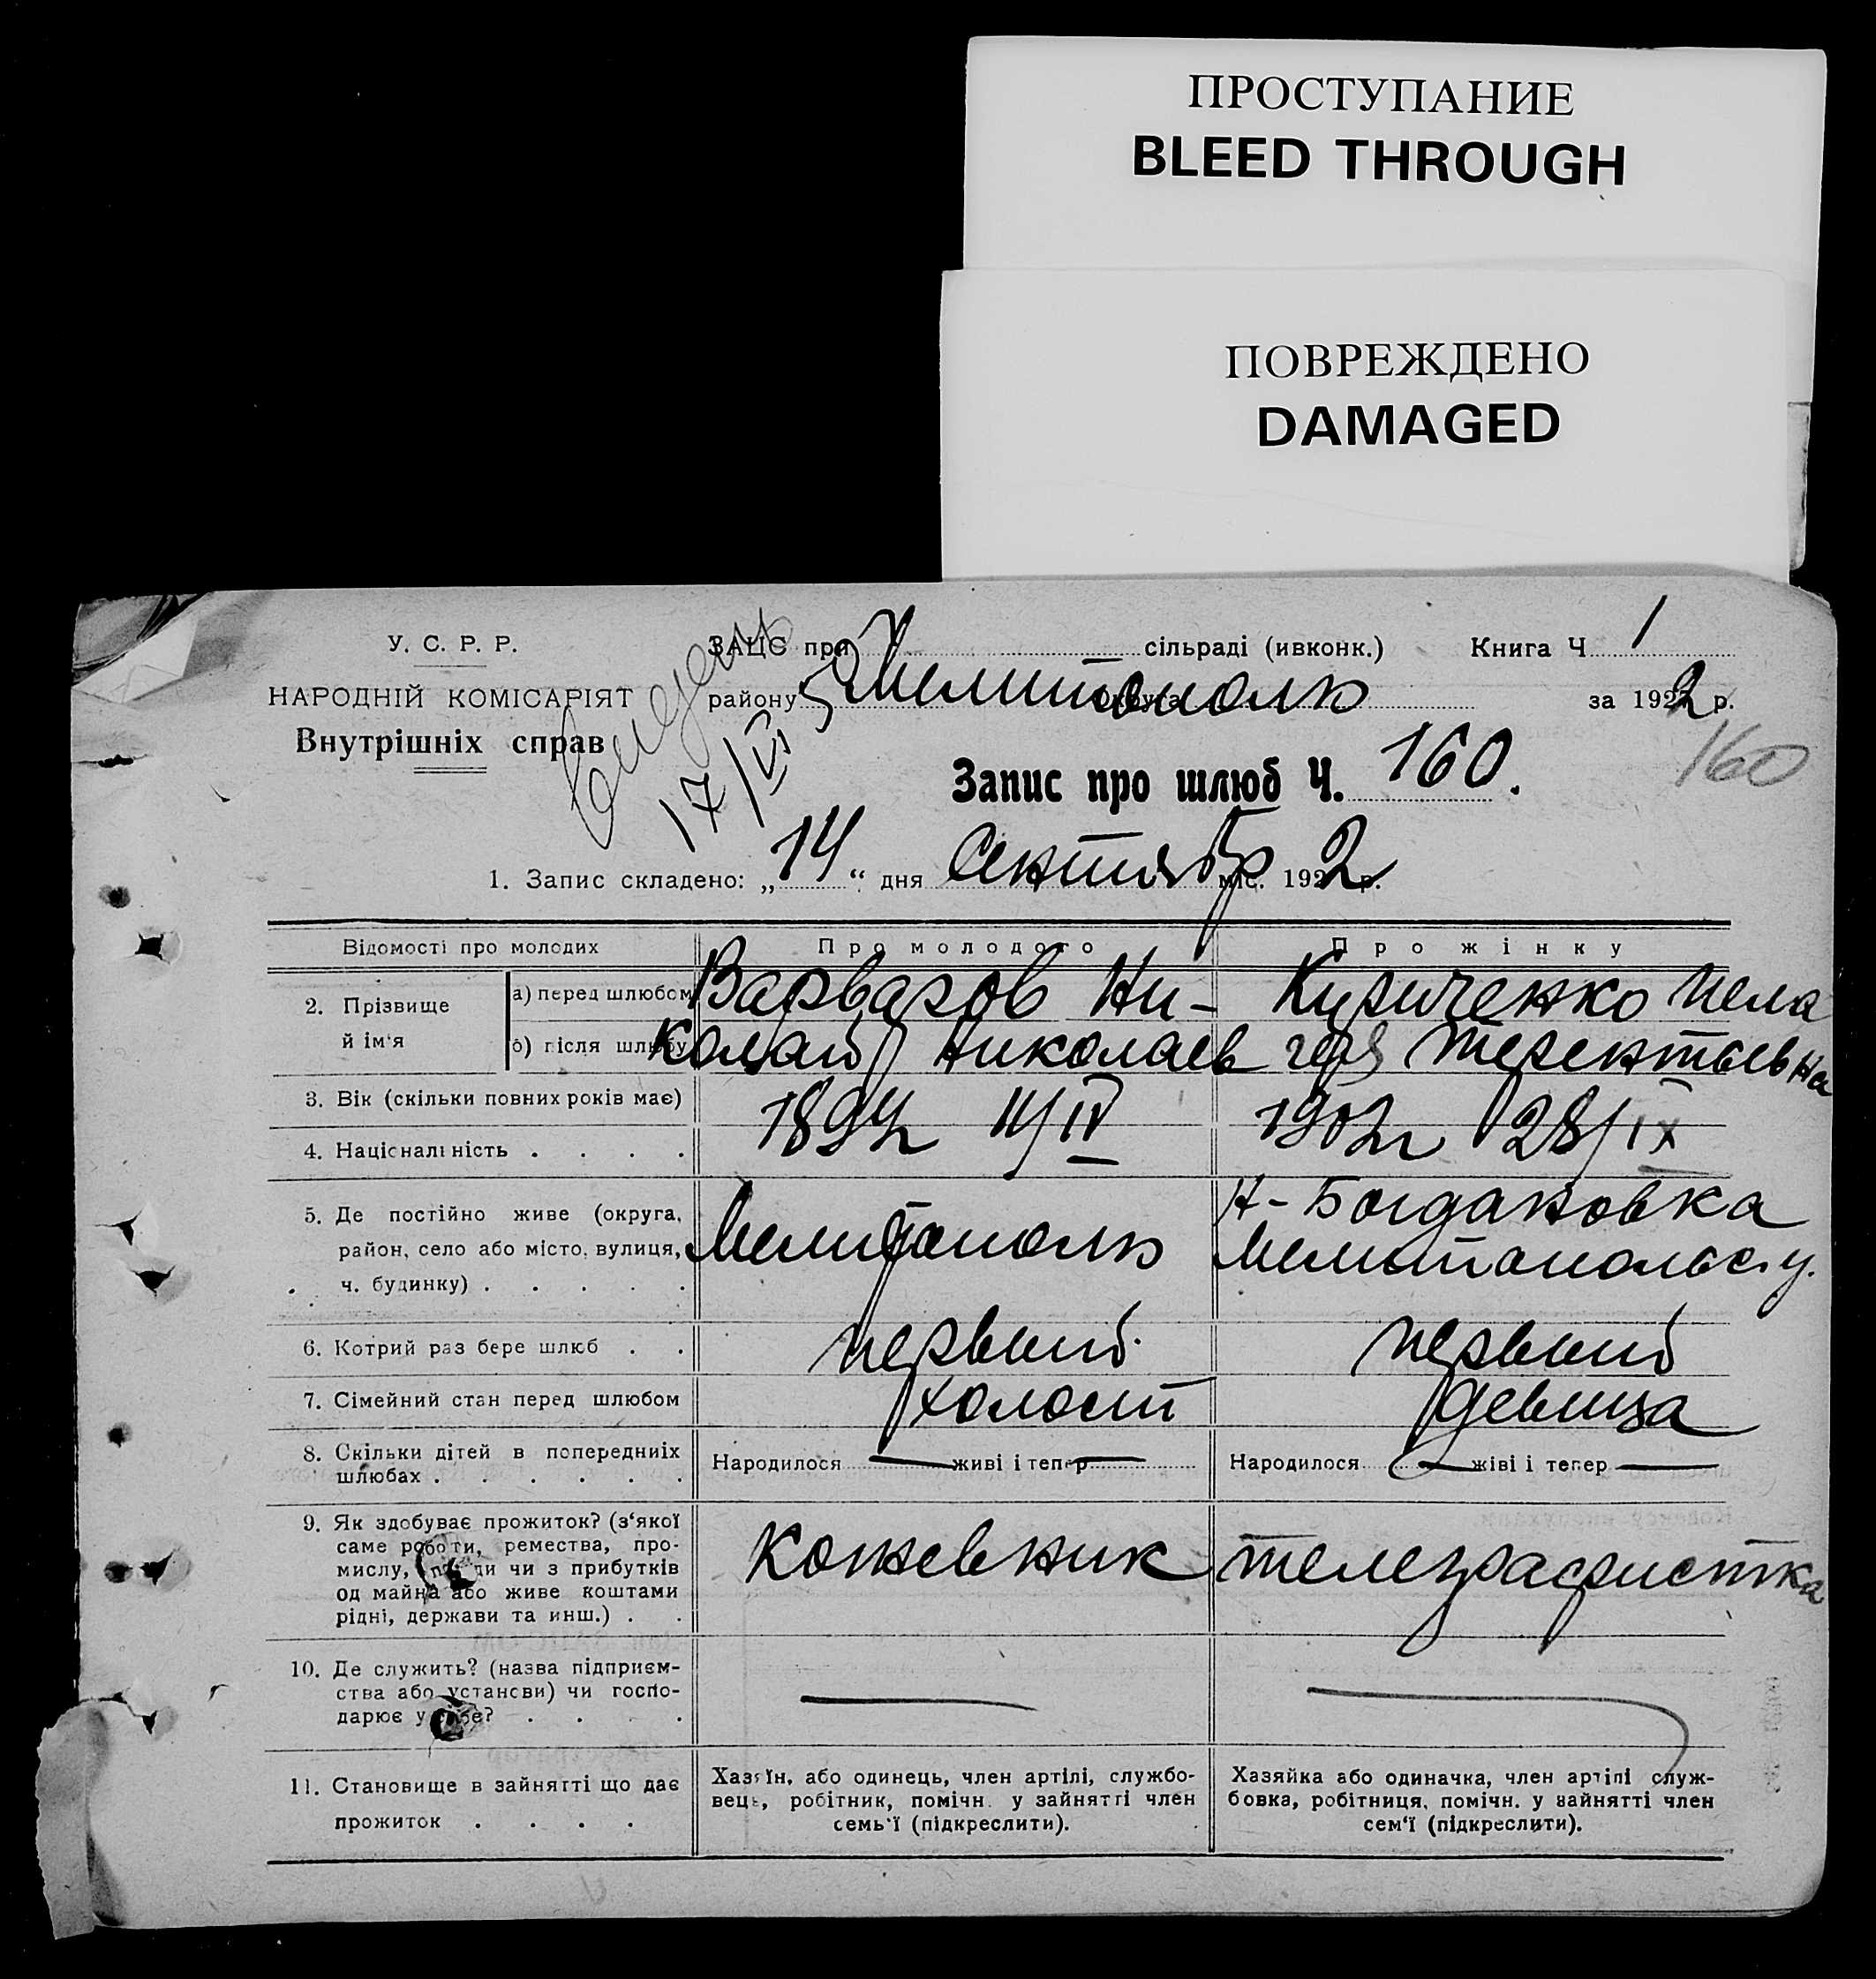 ПРОСТУПАНИЕ
BLEED THROUGH
ПОВРЕЖДЕНО
DAMAGED
У. С. Р. Р.
НАРОДНІЙ КОМІСАРІЯТ
Внутрішніх справ
17/VI
ЗАЦС при сільраді (ивконк.) Книга Ч 1
району Мелитополь за 1922 р.
Запис про шлюб Ч. 160.
160
1. Запис складено: „14“ дня Сентябр міс. 1922 р.
Відомості про молодих
Про молодого
Про жінку
2. Прізвище й ім'я
а) перед шлюбом
б) після шлюбу
Варваров Ни-
колай Николаев
Кириченко Пела
гея Терентьевна
3. Вік (скільки повних років має)
4. Націснальність . . . .
1902 28/IX
5. Де постійно живе (округа,
район, село або місто, вулиця,
ч. будинку) . . . . .
Мелитополь
Н-Богдановка
Мелитопольс. у.
6. Котрий раз бере шлюб . .
первый
первый
7. Сімейний стан перед шлюбом
холост
девица
8. Скільки дітей в попередниіх
шлюбах . . . . . .
Народилося — живі і тепер —
Народилося — жіві і тепер —
9. Як здобуває прожиток? (з'якої
саме роботи, ремества, про-
мислу, чи з прибутків
од майна або живе коштами
рідні, держави та инш.) . .
кожевник
телеграфистка
10. Де служить? (назва підприєм-
ства або установи) чи госпо-
дарює у себе? . . . .
—
—
11. Становище в зайнятті що дає
прожиток . . . .
Хазяїн, або одинець, член артілі, службо-
вець, робітник, помічн. у зайнятті член
семь'ї (підкреслити).
Хазяйка або одиначка, член артілі служ-
бовка, робітниця, помічн. у зайнятті член
сем'ї (підкреслити).